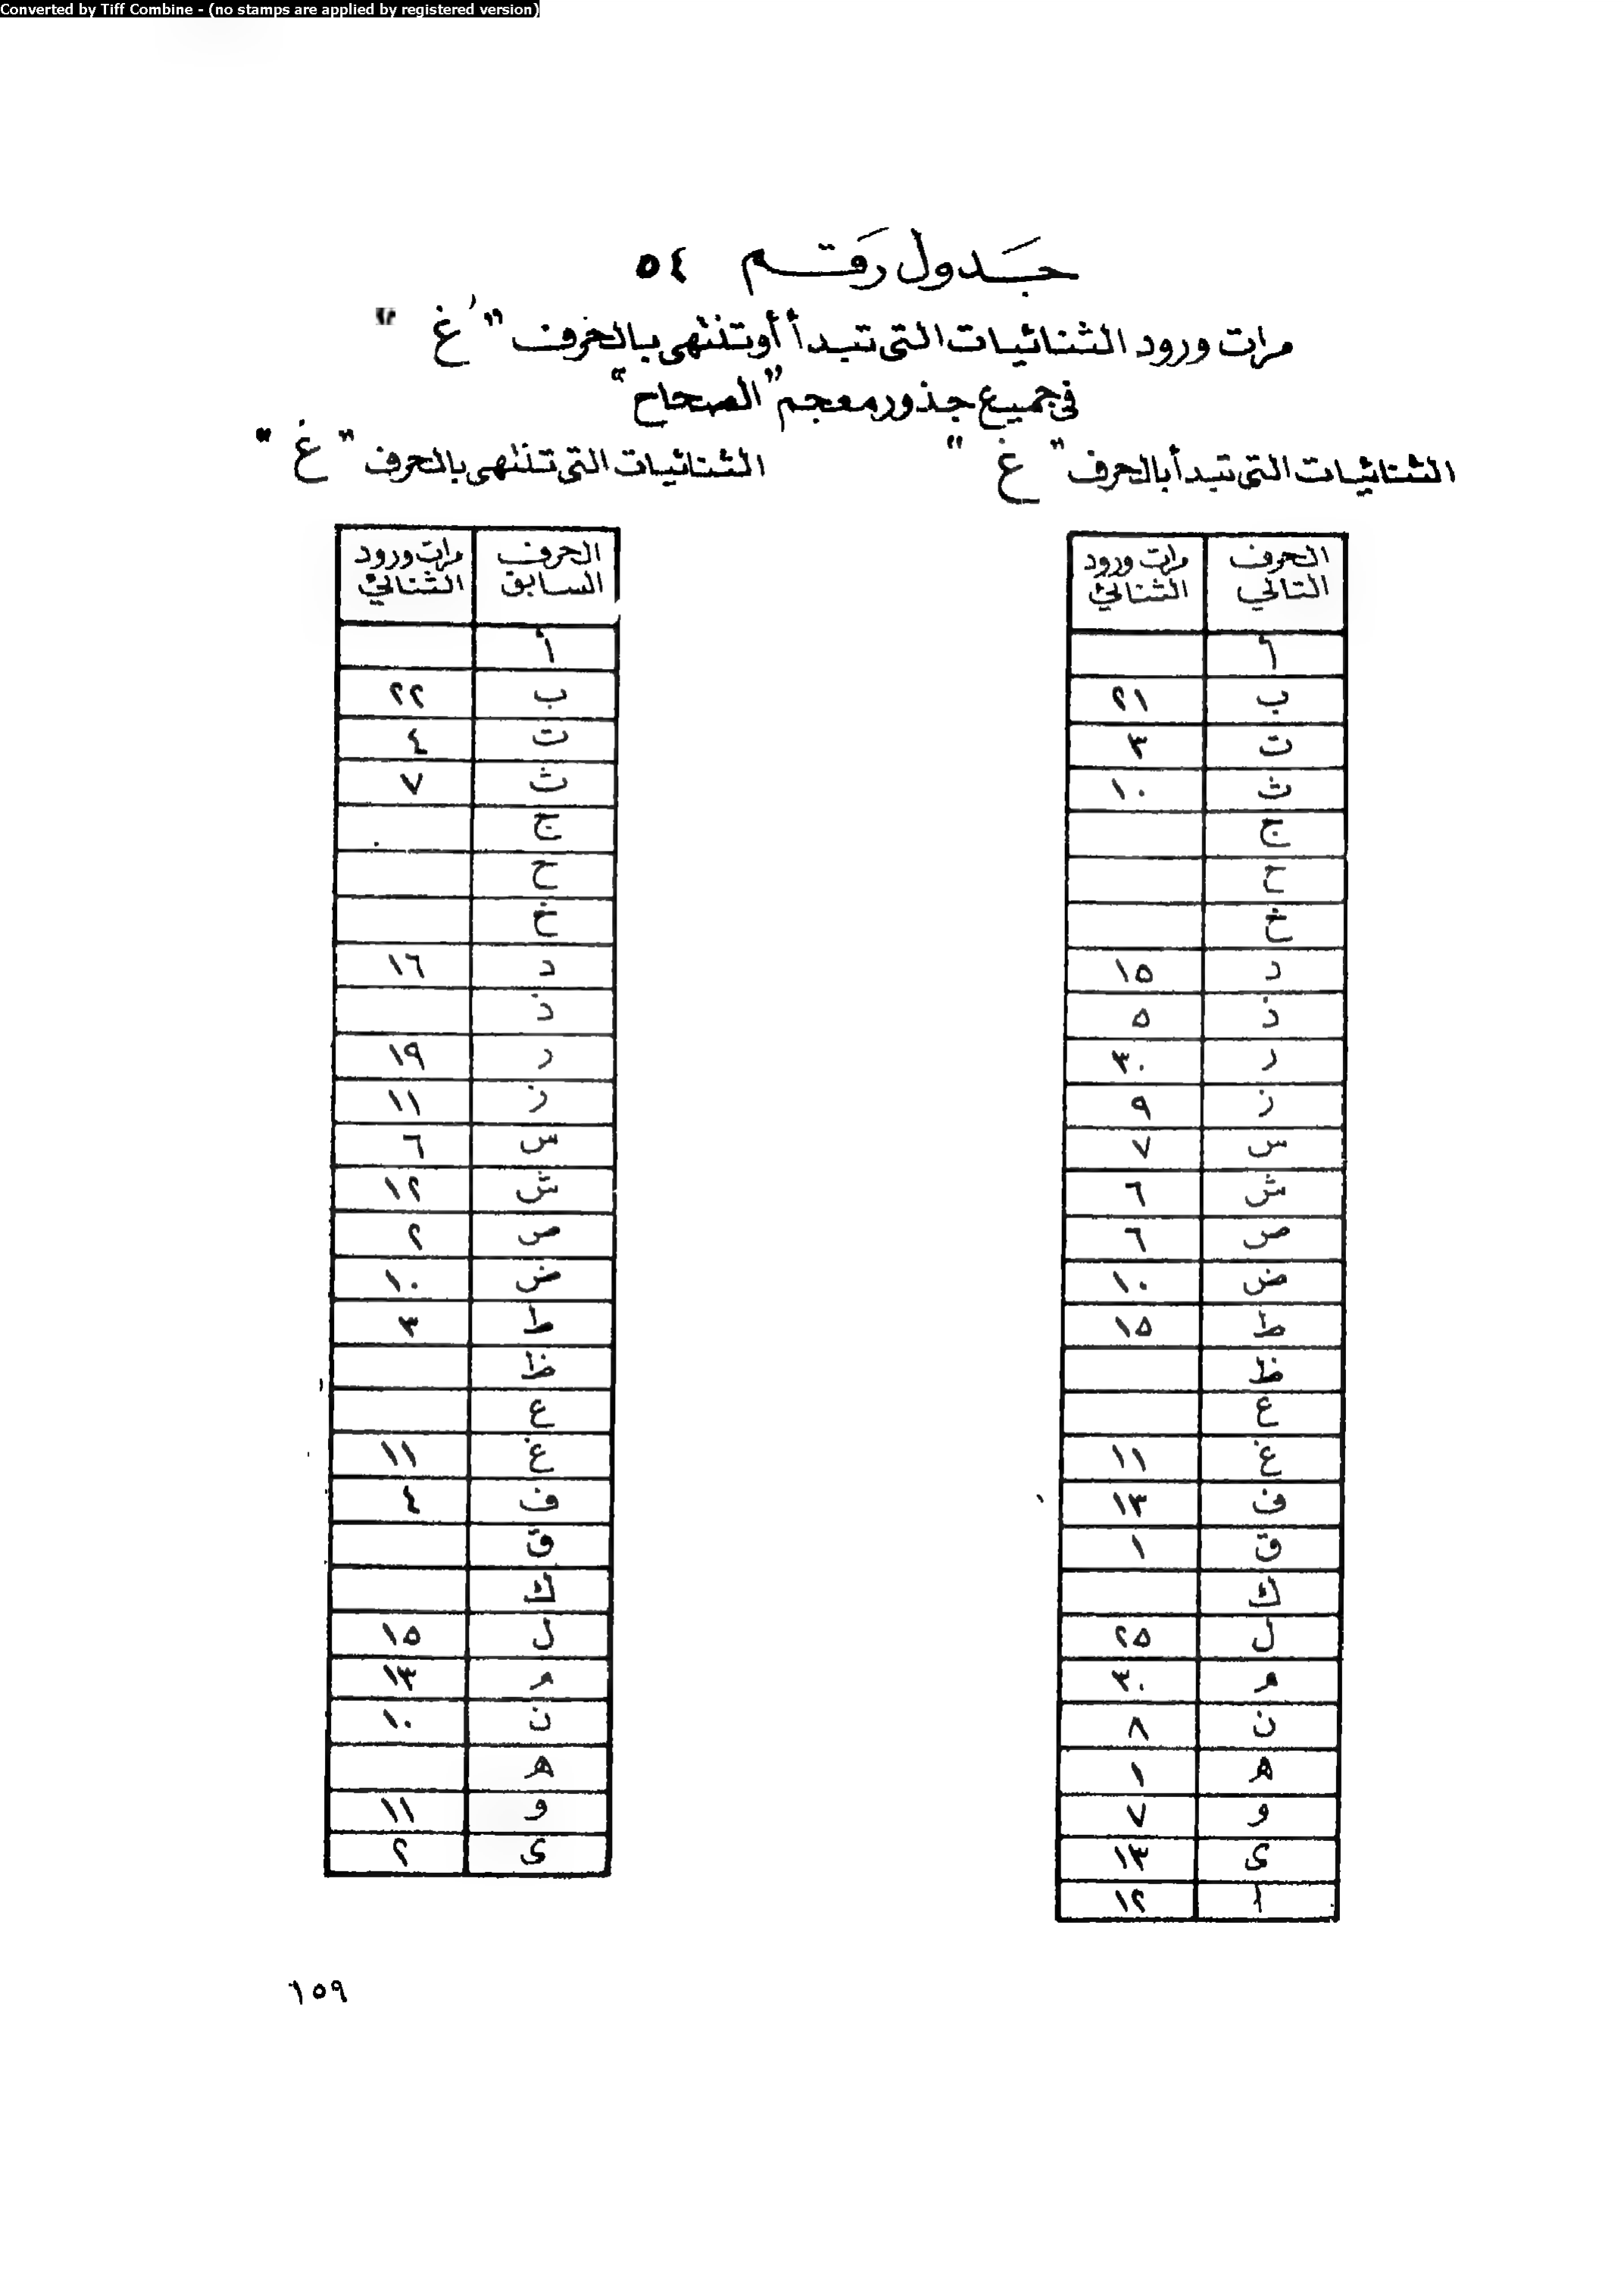 Converted by Tiff Combine - (no stamps are applied by registered version)
جَدول رَقم ٥٤
مرات ورود الثنائيات التى تبدأ أو تنتهى بالحرف "غ"
فى جميع جذور معجم "الصحاح"
الثنائيات التى تبدأ بالحرف "غ"
الحرف التالي مرات ورود الثنائي
أ
ب ٢١
ت ٣
ث ١٠
ج
ح
خ
د ١٥
ذ ٥
ر ٣٠
ز ٩
س ٧
ش ٦
ص ٦
ض ١٠
ط ١٥
ظ
ع
غ ١١
ف ١٣
ق ١
ك
ل ٢٥
م ٣٠
ن ٨
ه ١
و ٧
ى ١٣
ا ١٢
الثنائيات التى تنتهى بالحرف "غ"
الحرف السابق مرات ورود الثنائي
أ
ب ٢٢
ت ٤
ث ٧
ج
ح
خ
د ١٦
ذ
ر ١٩
ز ١١
س ٦
ش ١٢
ص ٢
ض ١٠
ط ٣
ظ
ع
غ ١١
ف ٤
ق
ك
ل ١٥
م ١٣
ن ١٠
ه
و ١١
ى ٢
١٥٩